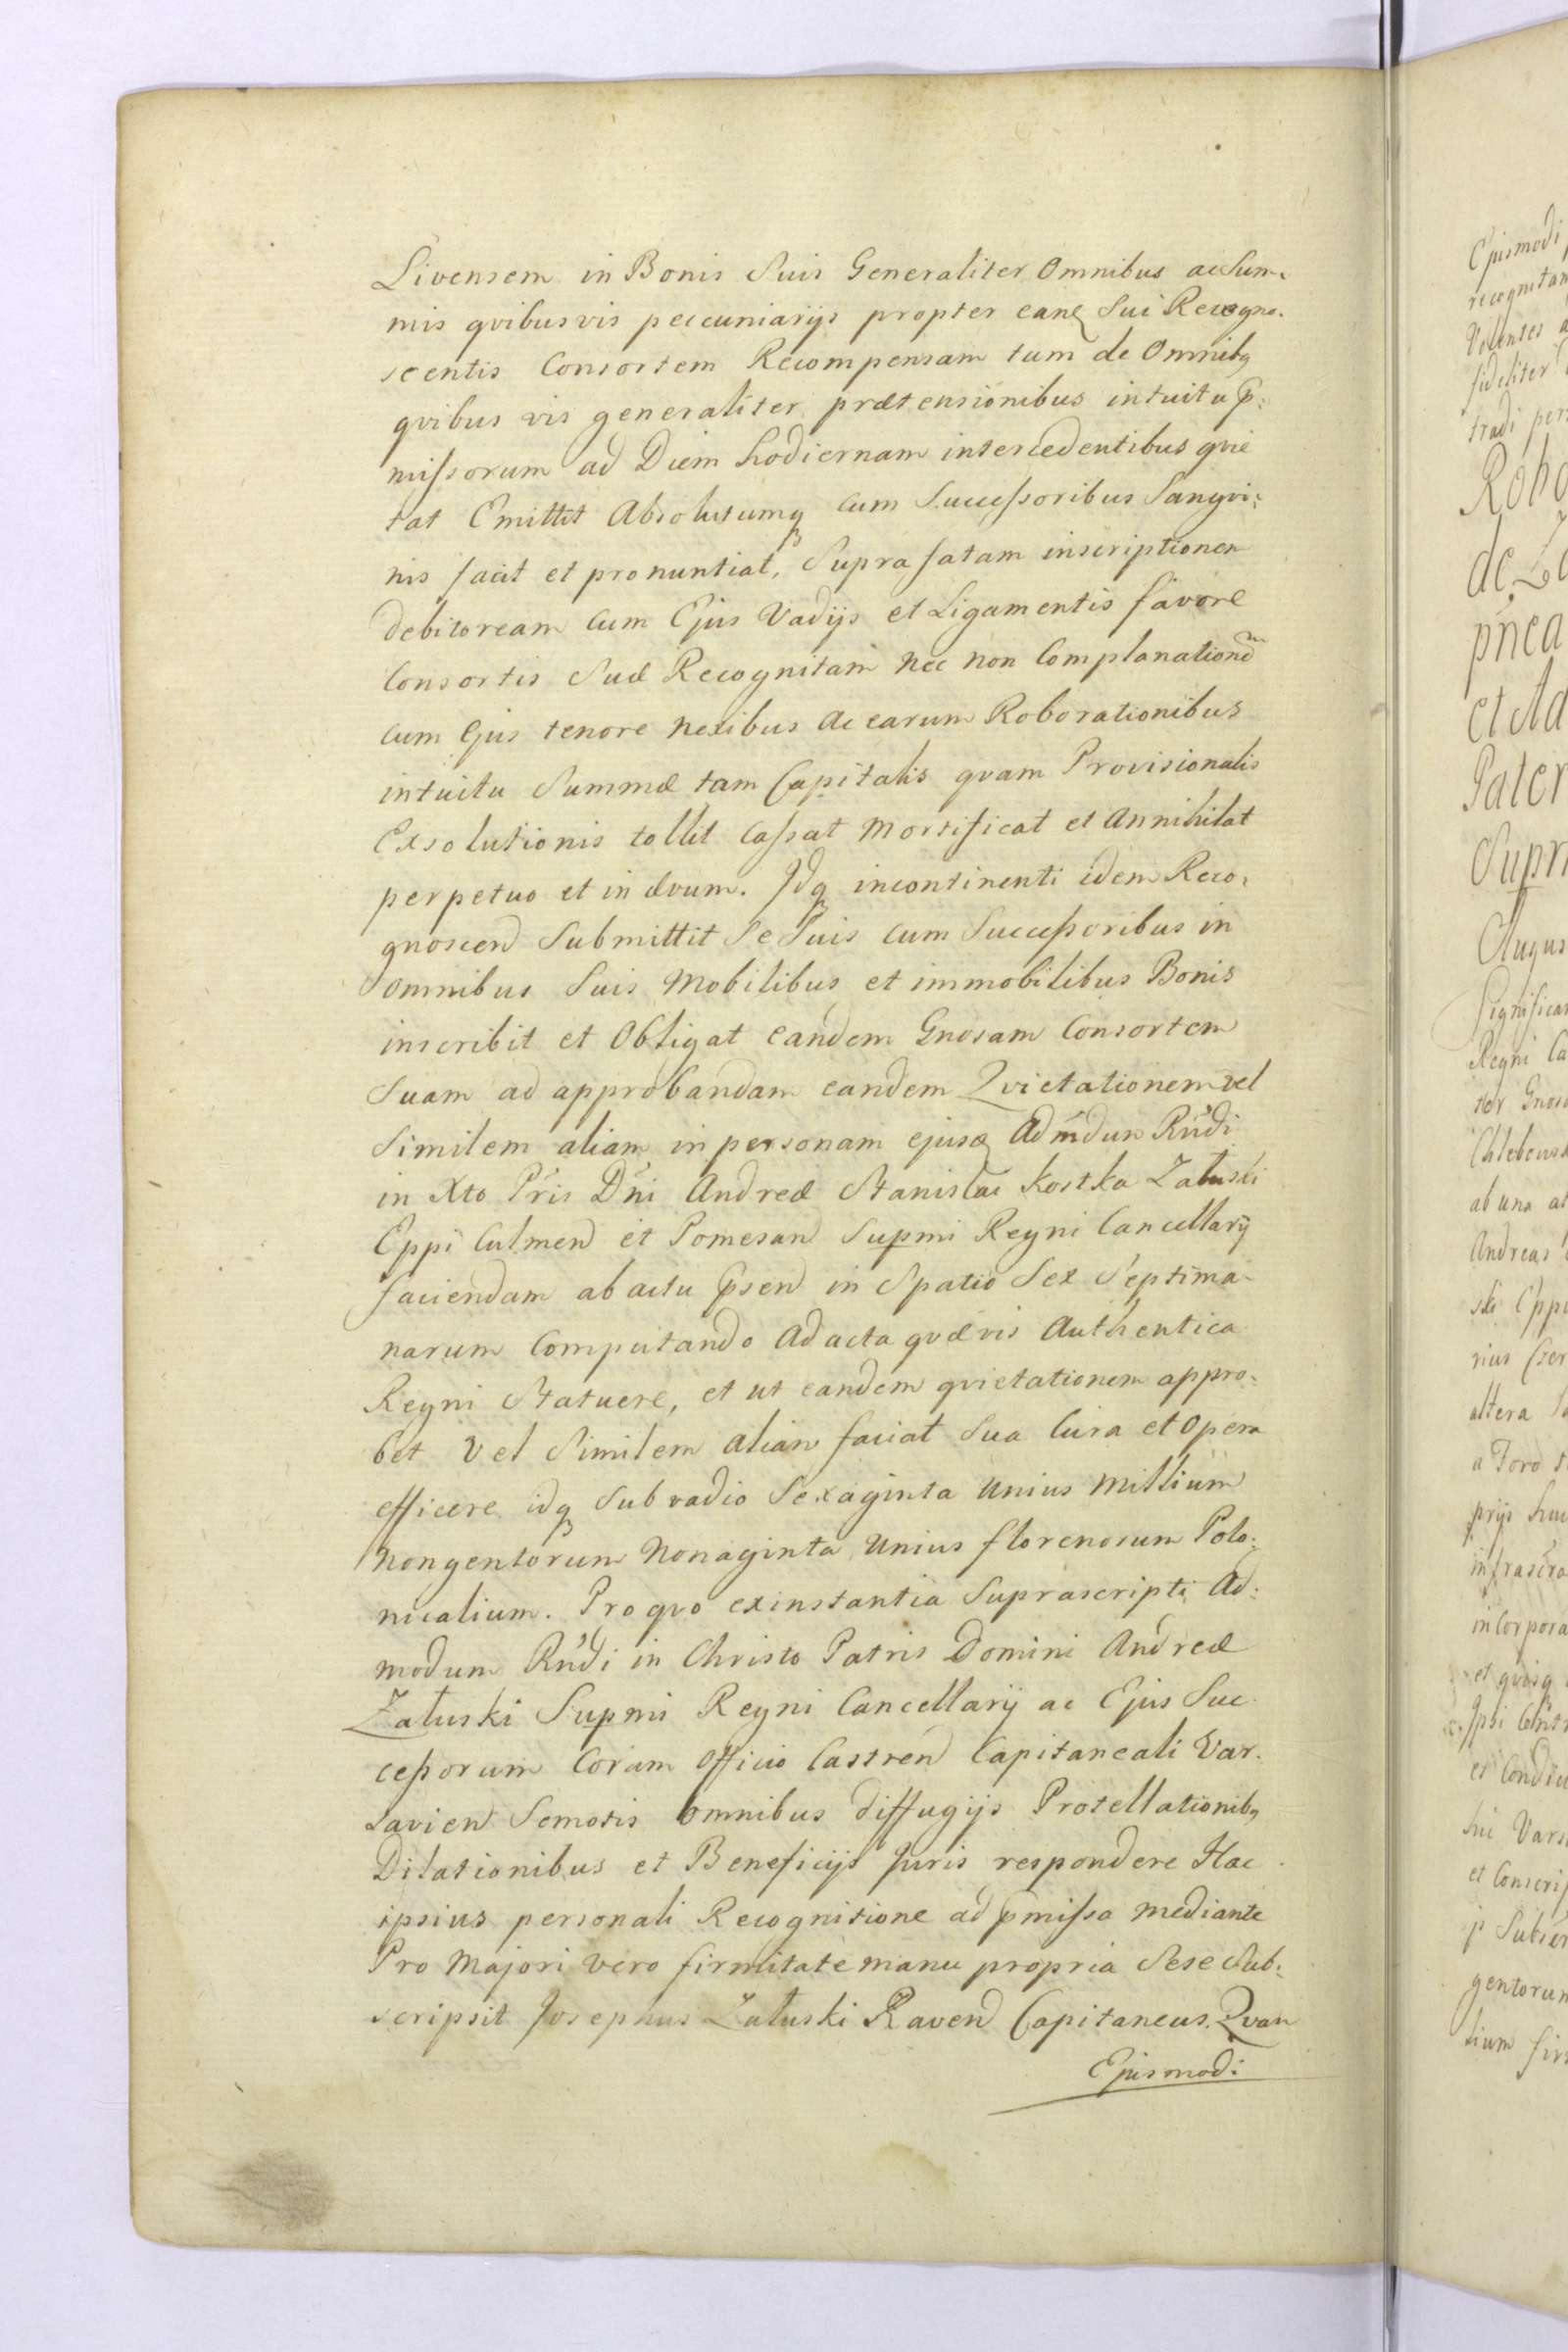 Livensem in Bonis Suis Generaliter Omnibus ac Sum-
mis qvibusvis peccuniarijs propter eanq Sui Recogno-
scentis Consortem Recompensam tum de Omnibq
qvibus vis generaliter prætensionibus intuitu p̄-
missorum ad Diem hodiernam intercedentibus qvie
tat Emittit Absolutumq cum Successoribus Sangvi-
nis facit et pronuntiat, Supra fatam inscriptionem
debitoream cum Ejus Vadijs et Ligamentis favore
Consortis Suæ Recognitam nec non Complanationem
cum Ejus tenore nexibus ac earum Roborationibus
intuitu Summæ tam Capitalis qvam Provisionalis
Exsolutionis tollit Cassat Mortificat et Annihilat
perpetuo et in ævum. Idq incontinenti idem Reco-
gnoscen Submittit Se Suis cum Successoribus in
omnibus Suis Mobilibus et immobilibus Bonis
inscribit et Obligat eandem Gnosam Consortem
Suam ad approbandam eandem Qvietationem vel
Similem aliam in personam ejusq Admdum Rndi
in Xto Pris Dni Andreæ Stanislai Kostka Załuski
Eppi Culmen et Pomesan Supmi Regni Cancellarij
faciendam ab actu p̄sen in Spatio Sex Septima-
narum Computando Ad acta qvævis Authentica
Regni Statuere, et ut eandem qvietationem appro-
bet Vel Similem aliam faciat Sua Cura et Opera
efficere idq Sub vadio Sexaginta Unius Millium
Nongentorum Nonaginta Unius florenorum Polo-
nicalium. Pro qvo ex instantia Suprascripti Ad-
modum Rndi in Christo Patris Domini Andreæ
Załuski Supmi Regni Cancellarij ac Ejus Suc
cessorum Coram Officio Castren Capitaneali Var-
savien Semotis Omnibus diffugijs Protellationibq
Dilationibus et Beneficijs Juris respondere Hac
ipsius personali Recognitione ad p̄missa mediante
Pro Majori vero firmitate manu propria Sese Sub-
scripsit Josephus Załuski Raven Capitaneus. Qvam
Ejusmodi